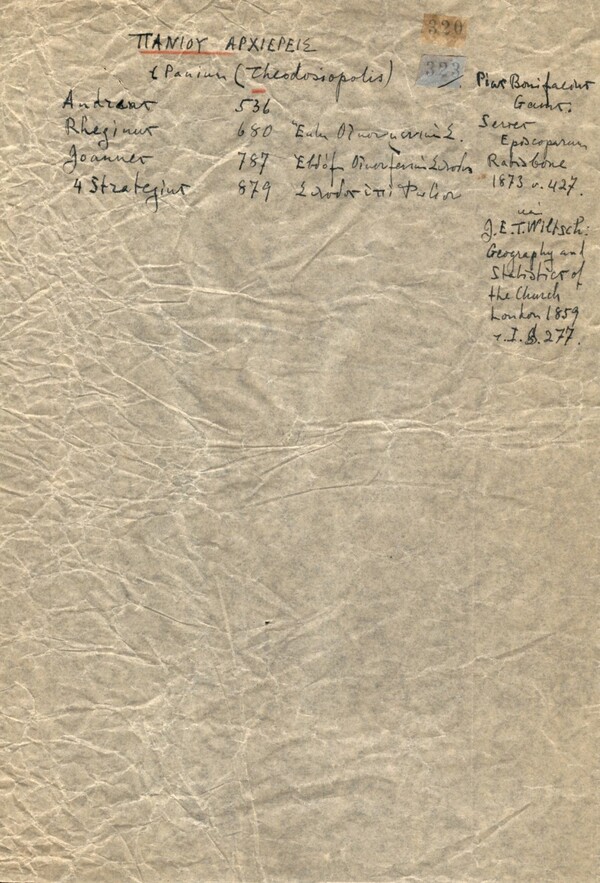 320
323
ΠΑΝΙΟΥ ΑΡΧΙΕΡΕΙΣ
Panium (Theodosiopolis)
Andreas 536
Rheginus 680 Σ.
Joannes 787
4 Strategius 879 Σύνοδος ἐπὶ Φωτίου
Pius Bonifacius
Gams.
Series
Episcoporum
Ratisbone
1873 σ. 427.
καὶ
J.E.T. Wiltsch:
Geography and
Statistics of
the Church
London 1859
τ. I. σ. 277.